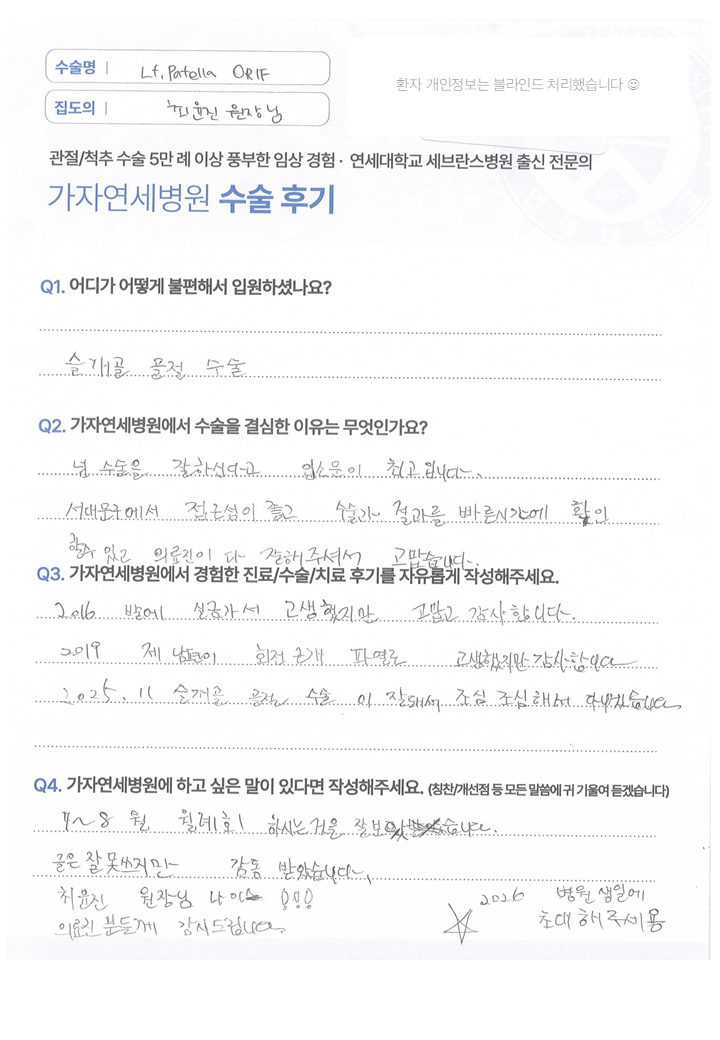 수술명 | Lt. Patella ORIF
환자 개인정보는 블라인드 처리했습니다 ☺
집도의 | 최윤진 원장님
관절/척추 수술 5만 례 이상 풍부한 임상 경험 · 연세대학교 세브란스병원 출신 전문의
가자연세병원 수술 후기
Q1. 어디가 어떻게 불편해서 입원하셨나요?
슬개골 골절 수술
Q2. 가자연세병원에서 수술을 결심한 이유는 무엇인가요?
넘 수술을 잘하신다고 입소문이 최고입니다.
서대문구에서 접근성이 좋고 수술과 결과를 빠른시간에 확인
할수 있고 의료진이 다 잘해주셔서 고맙습니다.
Q3. 가자연세병원에서 경험한 진료/수술/치료 후기를 자유롭게 작성해주세요.
2016 발에 실금가서 고생했지만 고맙고 감사합니다.
2019 제 남편이 회전근개 파열로 고생했지만 감사합니다
2025. 11 슬개골 골절 수술 이 잘돼서 조심 조심해서 다니겠습니다
Q4. 가자연세병원에 하고 싶은 말이 있다면 작성해주세요. (칭찬/개선점 등 모든 말씀에 귀 기울여 듣겠습니다)
7~8월 월례회 하시는것을 잘보았습니다.
글은 잘 못쓰지만 감동 받았습니다.
최윤진 원장님 나이스 !!!
2026 병원 생일에
의료진 분들께 감사드립니다.
초대해주세용